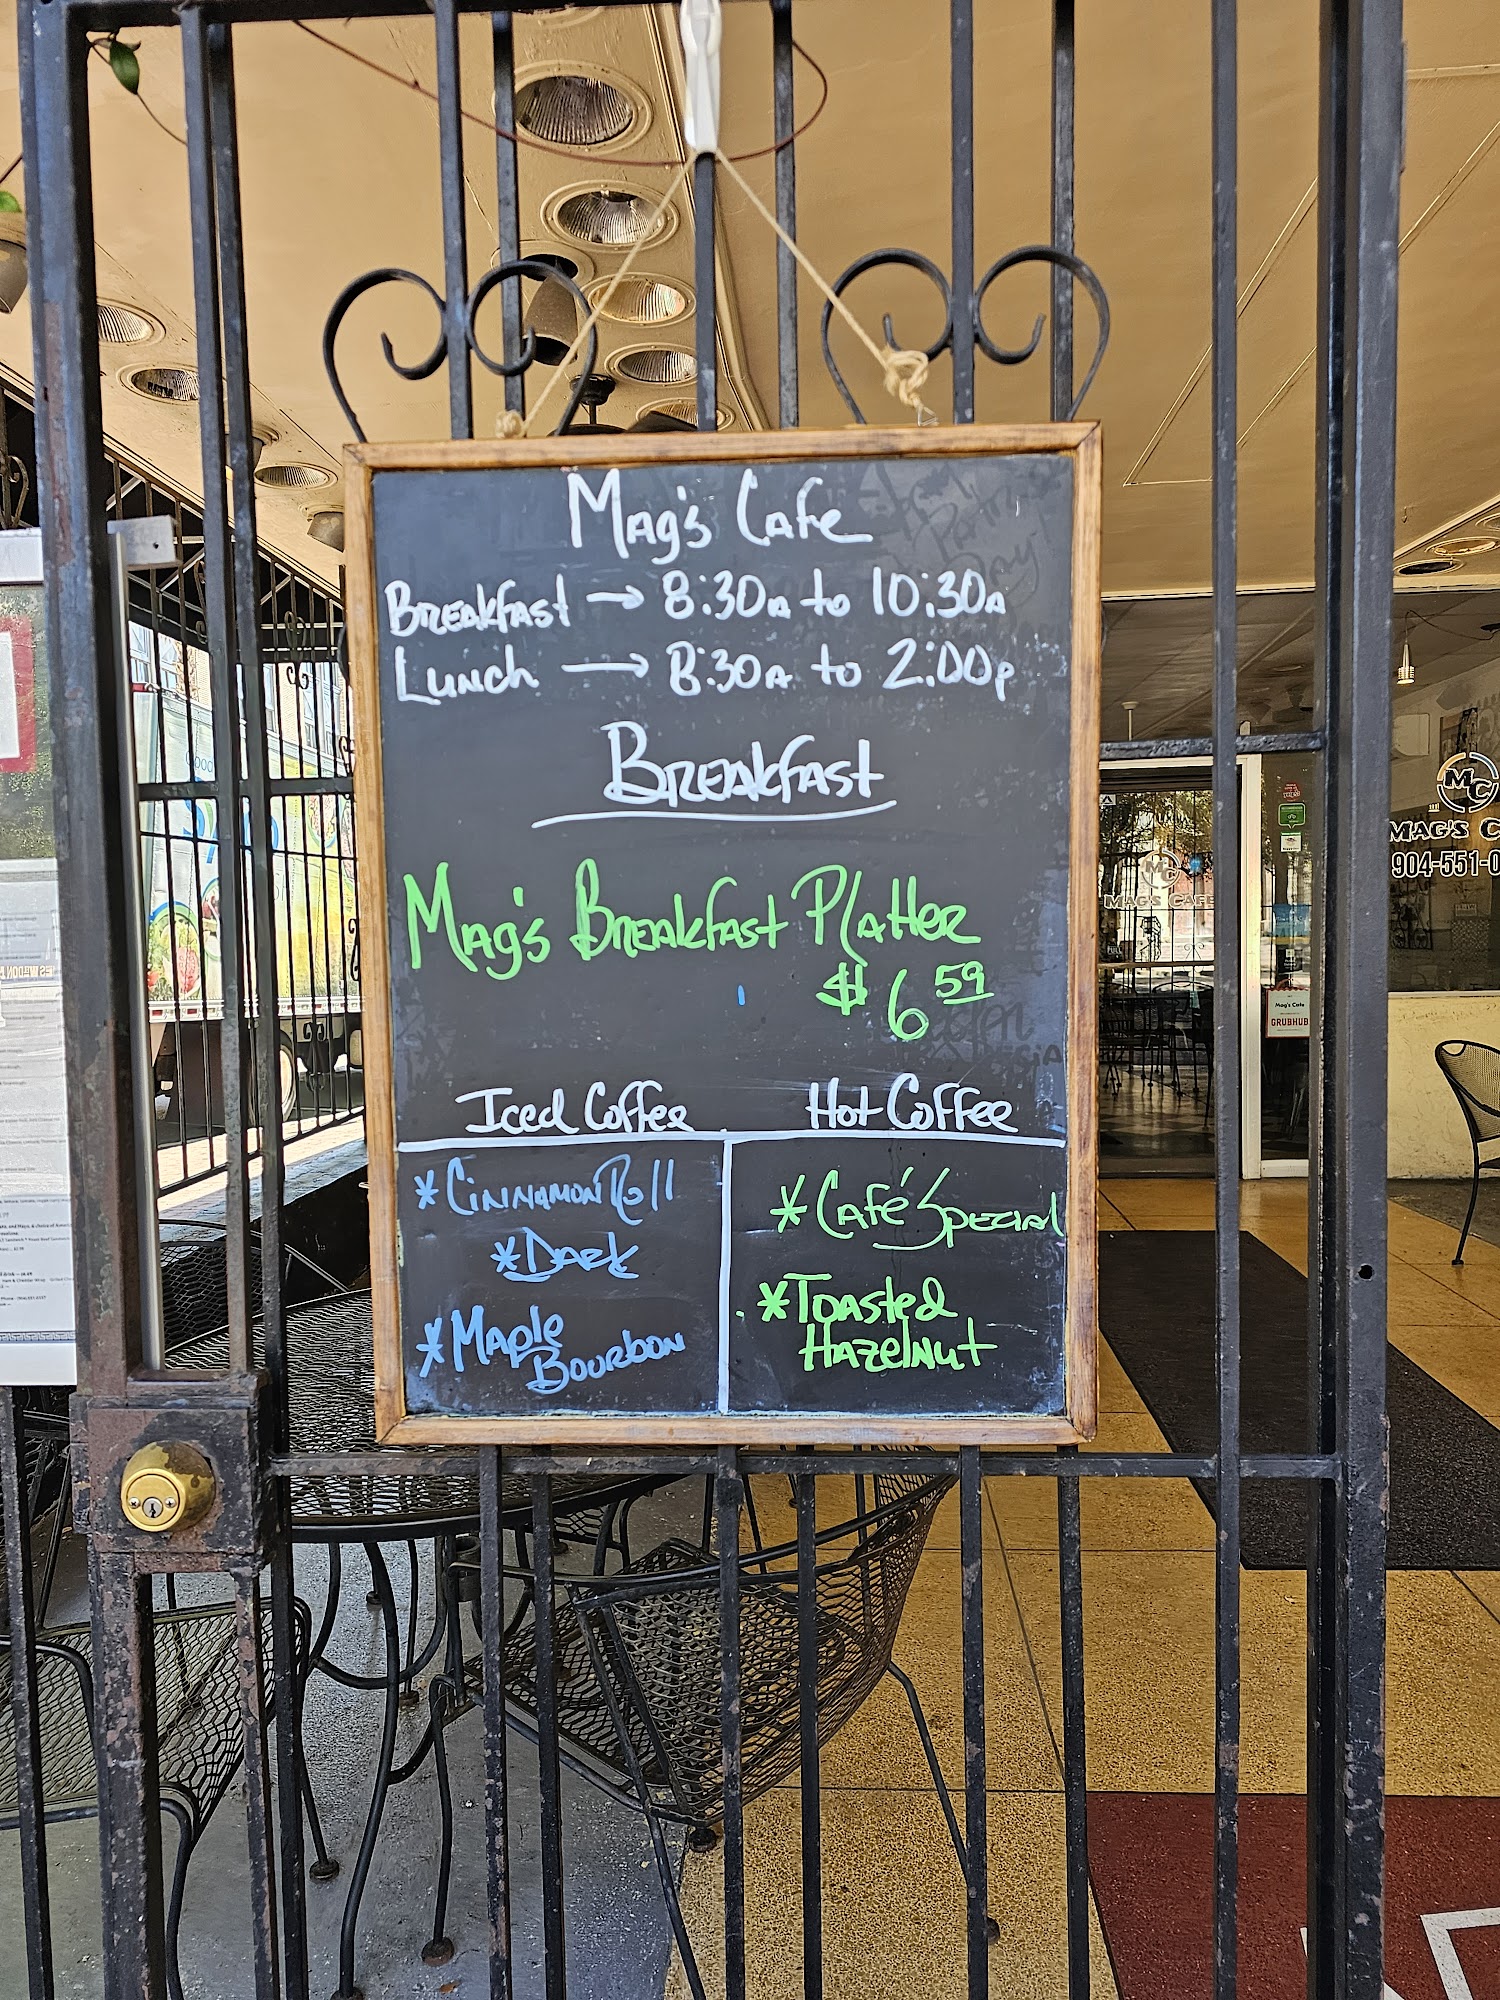 Mag's Cafe
Breakfast → 8:30A to 10:30A
Lunch → 8:30A to 2:00p
Breakfast
Mag's Breakfast Platter
$6 59
Iced Coffee
*Cinnamon Roll
*Dark
*Maple
Bourbon
Hot Coffee
*Café Special
*Toasted
Hazelnut
MC
MAG'S C
904-551-0
MC
MAG'S CAFE
Mag's Cafe
GRUBHUB